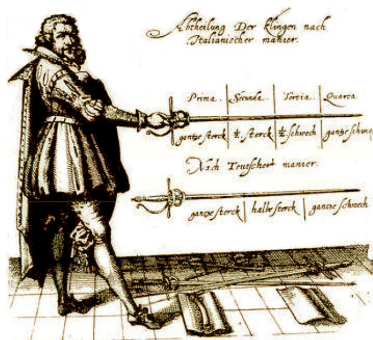 Abtheilung Der klingen nach
Italianischer manier.
Prima. Secunda. Tertia. Quarta
gantze sterck ½. sterck ½ schwech gantze schwech
Nach Teutscher manier.
gantze sterck halbe sterck gantze schwech